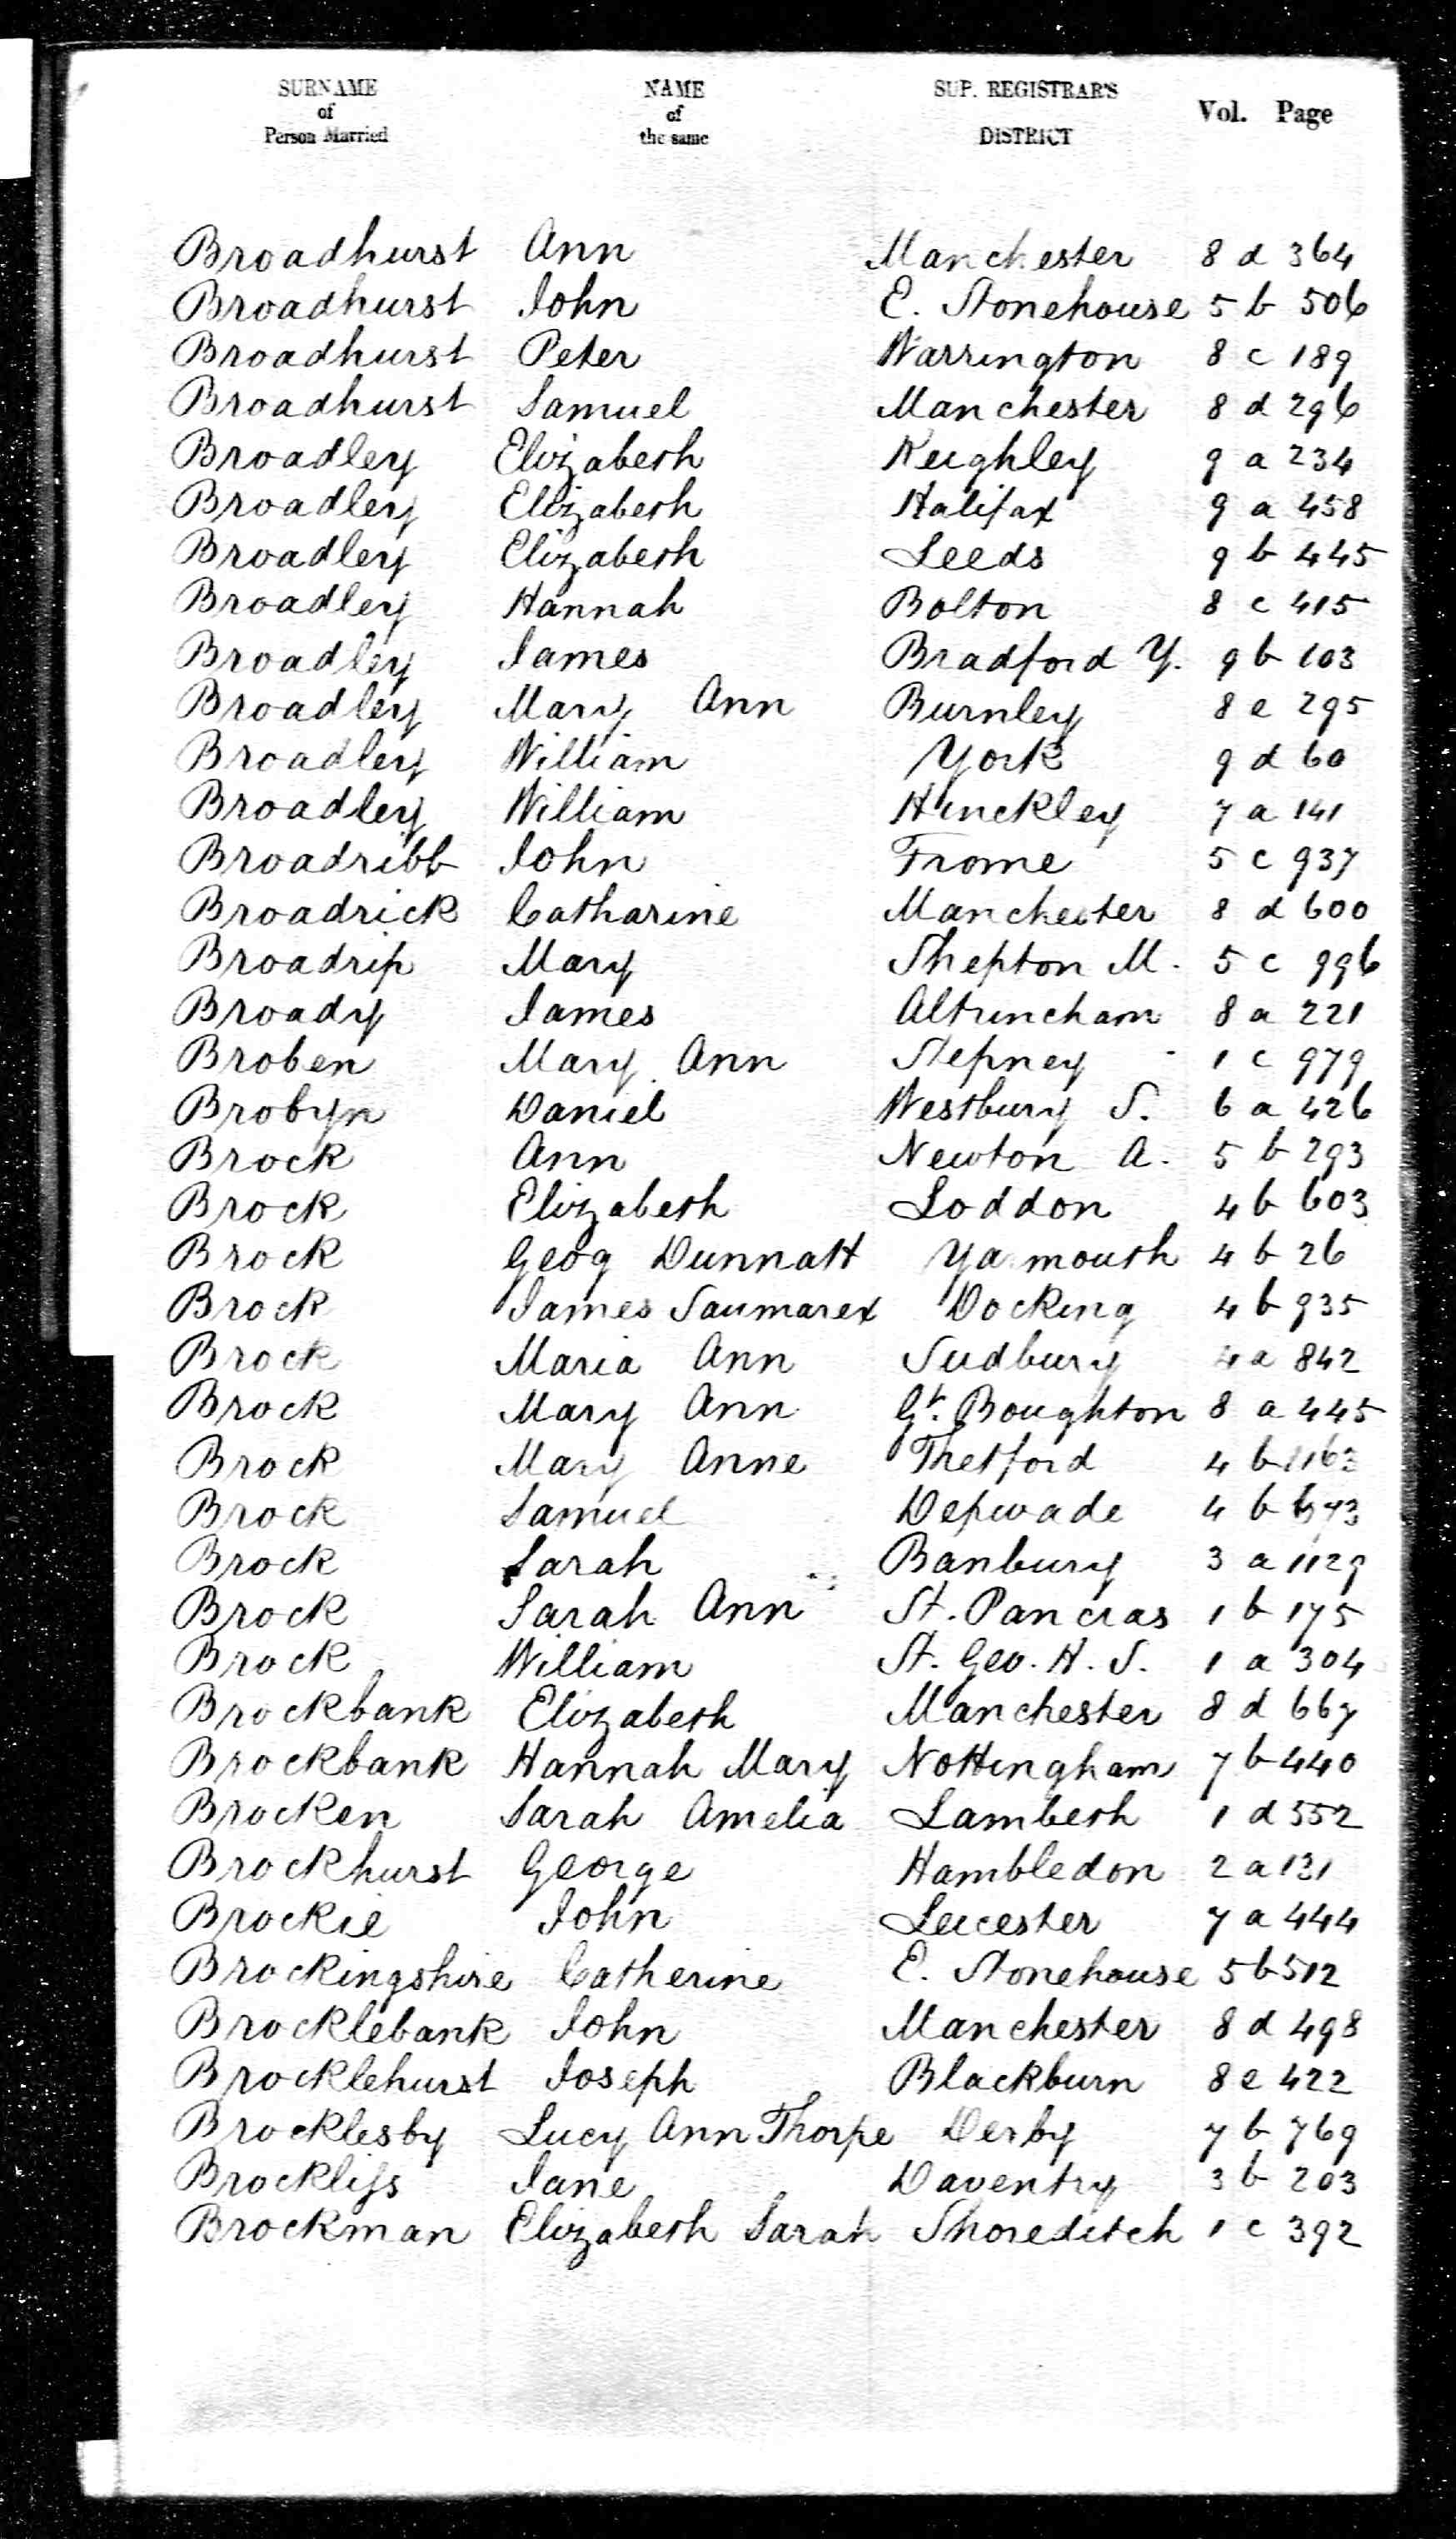 SURNAME of Person Married NAME of the same SUP. REGISTRAR'S DISTRICT Vol. Page
Broadhurst Ann Manchester 8 d 364
Broadhurst John E. Stonehouse 5 b 506
Broadhurst Peter Warrington 8 c 189
Broadhurst Samuel Manchester 8 d 296
Broadley Elizabeth Keighley 9 a 234
Broadley Elizabeth Halifax 9 a 458
Broadley Elizabeth Leeds 9 b 445
Broadley Hannah Bolton 8 c 415
Broadley James Bradford Y. 9 b 103
Broadley Mary Ann Burnley 8 e 295
Broadley William York 9 d 60
Broadley William Hinckley 7 a 141
Broadribb John Frome 5 c 937
Broadrick Catharine Manchester 8 d 600
Broadrip Mary Shepton M. 5 c 996
Broady James Altrincham 8 a 221
Broben Mary Ann Stepney 1 c 979
Brobyn Daniel Westbury S. 6 a 426
Brock Ann Newton A. 5 b 293
Brock Elizabeth Loddon 4 b 603
Brock Geog Dunnatt Yarmouth 4 b 26
Brock James Saumarex Docking 4 b 935
Brock Maria Ann Sudbury 4 a 842
Brock Mary Ann Gt. Boughton 8 a 445
Brock Mary Anne Thetford 4 b 1163
Brock Samuel Depwade 4 b
Brock Sarah Banbury 3 a 1129
Brock Sarah Ann St. Pancras 1 b 175
Brock William St. Geo. H. S. 1 a 304
Brockbank Elizabeth Manchester 8 d 667
Brockbank Hannah Mary Nottingham 7 b 440
Brocken Sarah Amelia Lambeth 1 d 552
Brockhurst George Hambledon 2 a 131
Brockie John Leicester 7 a 444
Brockingshire Catherine E. Stonehouse 5 b 512
Brocklebank John Manchester 8 d 498
Brocklehurst Joseph Blackburn 8 e 422
Brocklesby Lucy Ann Thorpe Derby 7 b 769
Brockliss Jane Daventry 3 b 203
Brockman Elizabeth Sarah Shoreditch 1 c 392